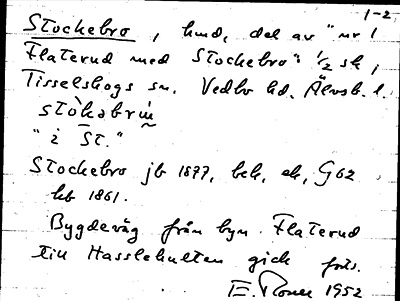 1-2
Stockebro, hmd, del av "nr 1
Flaterud med Stockebro" 1/2 sk,
Tisselskogs sn. Vedbo hd. Älvsb. l.
stòkəbrὼ
"i St."
Stockebro jb 1877, bek, ek, G62
kb 1861.
Bygdeväg från byn Flaterud
till Hasslehulten gick förb.
E. Rosell 1952